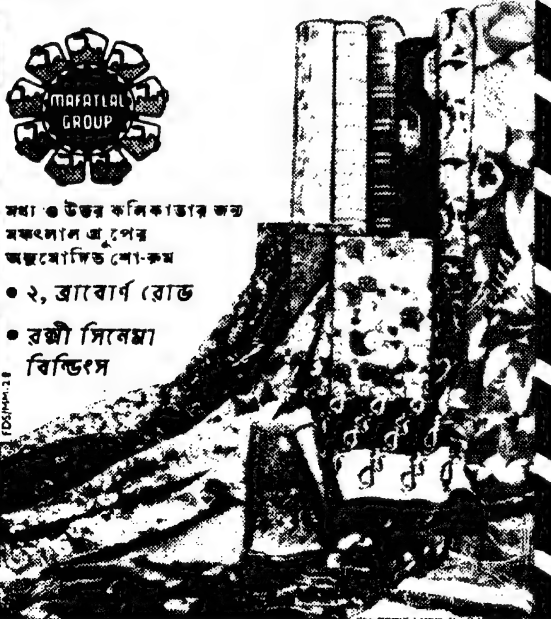 MAFATLAL
GROUP
মধ্য ও উত্তর কলিকাতার জন্য
মফৎলাল গ্রুপের
অনুমোদিত শো-রুম
• ২, ব্রাবোর্ণ রোড
• রক্সী সিনেমা
বিল্ডিংস
FDS/MM-28